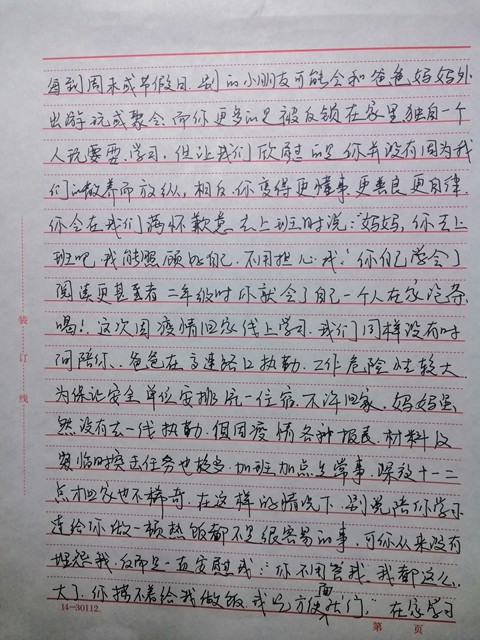 每到周末或节假日，别的小朋友可能会和爸爸妈妈外
出游玩或聚会，而你更多的是被反锁在家里独自一个
人玩耍、学习，但让我们欣慰的是你并没有因为我
们的教养而放纵，相反你变得更懂事更善良更自律
你会在我们满怀歉意去上班时说："妈妈，你去上
班吧，我能照顾好自己，不用担心我！你自己学会了
阅读更甚至者二年级时你就会了自己一个人在家
喝！这次因疫情回家线上学习，我们同样没有时
间陪你、爸爸在高速路口执勤，工作危险性较大
为保证安全单位安排统一住宿，不许回家，妈妈虽
然没有去一线执勤，但因疫情各种报表、材料及
临时突击任务也较多，加班加点是常事，深夜十一二
点才回家也不稀奇，在这样的情况下，别说陪你学习
连给你做一顿热饭都不是很容易的事，可你从来没有
埋怨我，反而是一直安慰我："你不用管我，我都这么
大了，你捞不着给我做饭，我吃方便面就行。"在家学习
装
订
线
14-30112
第 页